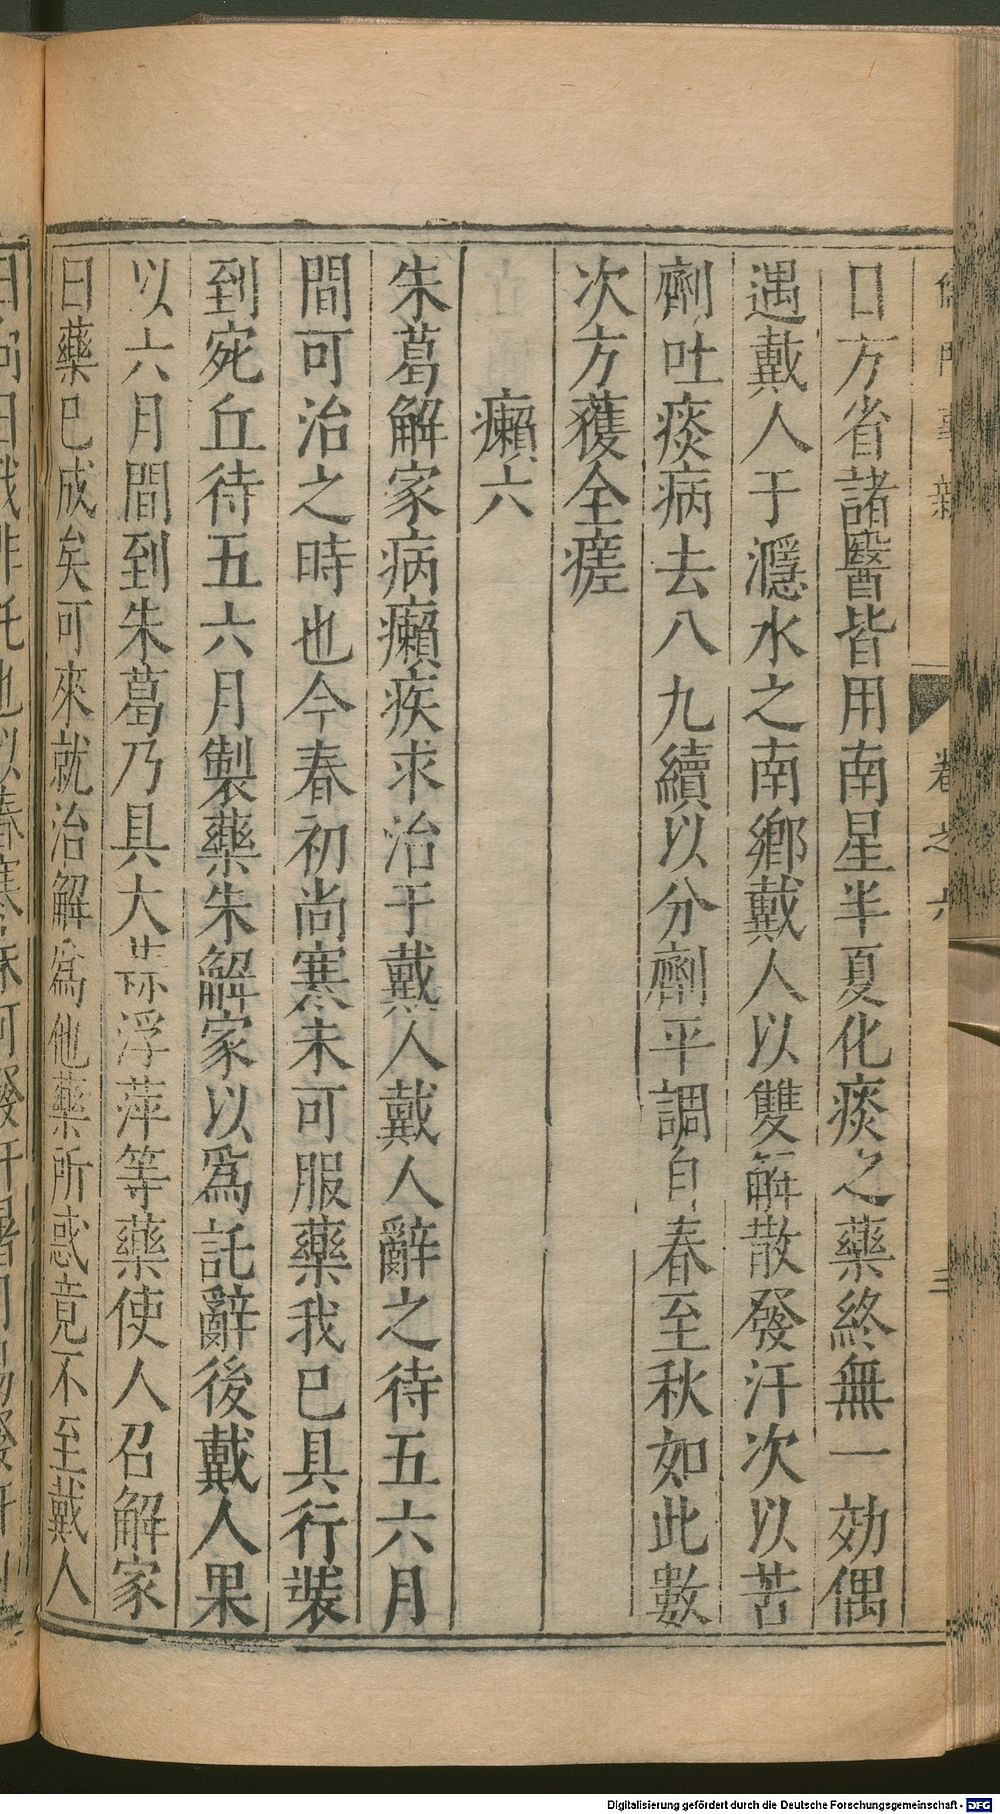 儒門事親 卷之六 三
口方省諸醫皆用南星半夏化痰之藥終無一効偶
遇戴人于濦水之南鄉戴人以雙解散發汗次以苦
劑吐痰病去八九續以分劑平調自春至秋如此數
次方獲全瘥
癩六
朱葛解家病癩疾求治于戴人戴人辭之待五六月
間可治之時也今春初尚寒未可服藥我已具行裝
到宛丘待五六月製藥朱解家以爲託辭後戴人果
以六月間到朱葛乃具大蒜浮萍等藥使人召解家
曰藥已成矣可來就治解爲他藥所惑竟不至戴人
Digitalisierung gefördert durch die Deutsche Forschungsgemeinschaft - DFG